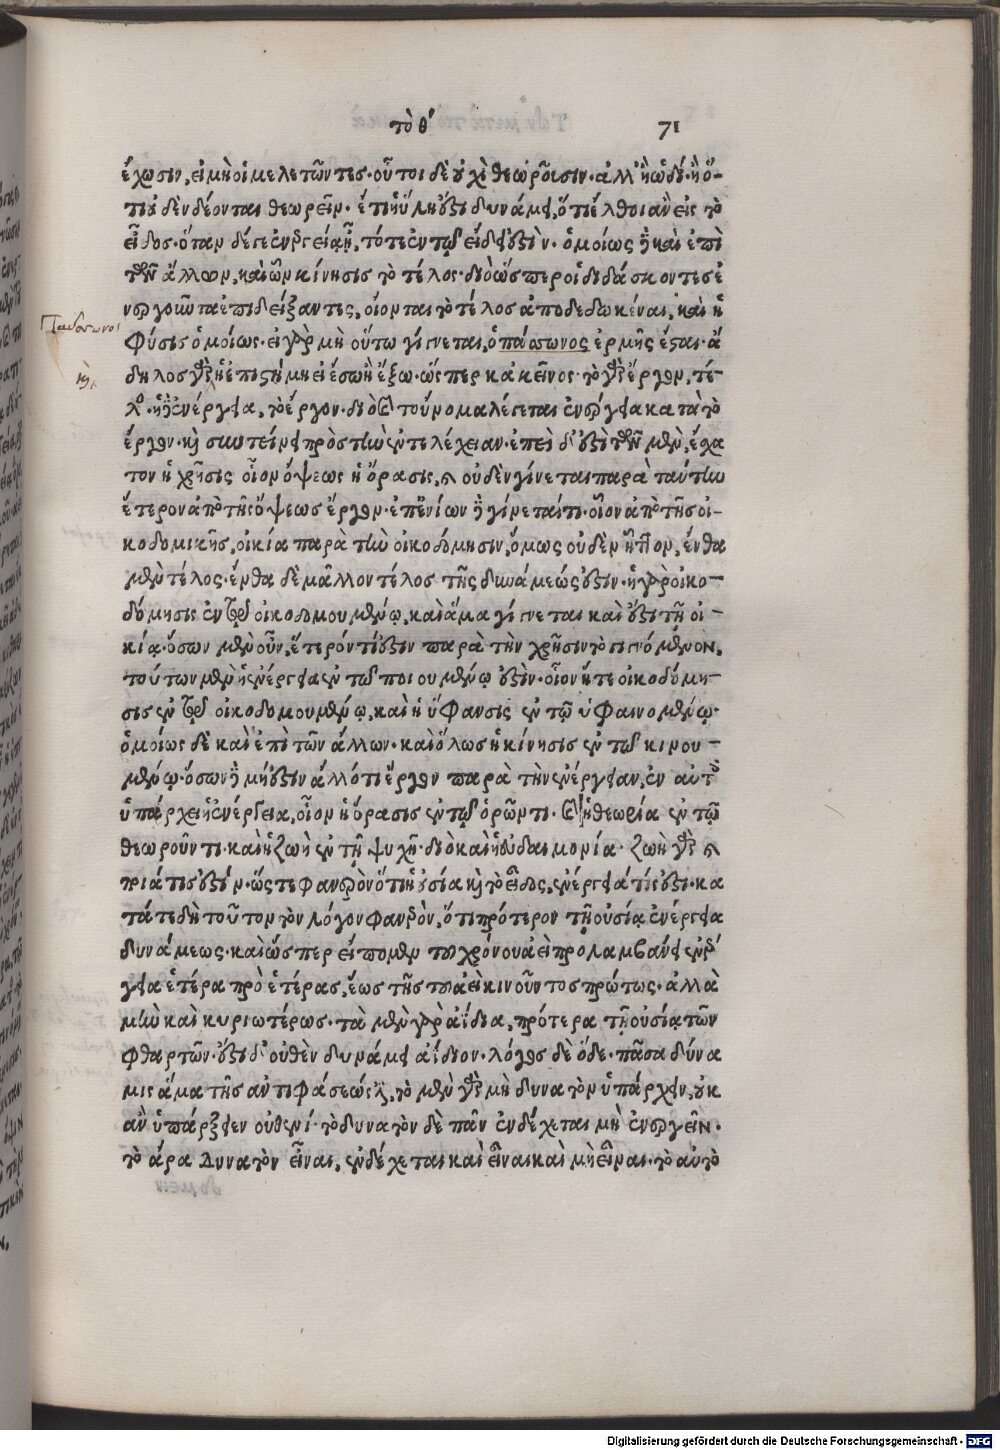 τὸ θ΄ 71
ἔχωσιν, εἰ μὴ οἱ μελετῶντες· οὗτοι δὲ οὐχὶ θεωροῦσιν· ἀλλ' ἢ ὡδί· ἢ ὅ-
τι οὐδὲν δέονται θεωρεῖν· ἔτι ἡ ὕλη ἐστὶ δυνάμει, ὅτι ἔλθοι ἂν εἰς τὸ
εἶδος· ὅταν δέ γε ἐνεργείᾳ ᾖ, τότε ἐν τῷ εἴδει ἐστὶν· ὁμοίως δὲ καὶ ἐπὶ
τῶν ἄλλων, καὶ ὧν κίνησις τὸ τέλος· διὸ ὥσπερ οἱ διδάσκοντες ἐ
νεργοῦντα ἐπιδείξαντες, οἴονται τὸ τέλος ἀποδεδωκέναι, καὶ ἡ
φύσις ὁμοίως· εἰ γὰρ μὴ οὕτω γίγνεται, ὁ πάσωνος ἑρμῆς ἔσται· ἄ
δηλος γὰρ ἡ ἐπιστήμη εἰ ἔσω ἢ ἔξω· ὥσπερ κἀκεῖνος· τὸ γὰρ ἔργον, τέ-
λος· ἡ δὲ ἐνέργεια, τὸ ἔργον· διὸ καὶ τοὔνομα λέγεται ἐνέργεια κατὰ τὸ
ἔργον· καὶ συντείνει πρὸς τὴν ἐντελέχειαν· ἐπεὶ δ' ἐστὶ τῶν μὲν, ἔσχα
τον ἡ χρῆσις οἷον ὄψεως ἡ ὅρασις, καὶ οὐδὲν γίνεται παρὰ ταύτην
ἕτερον ἀπὸ τῆς ὄψεως ἔργον· ἐπ' ἐνίων δὲ γίνεταί τι· οἷον ἀπὸ τῆς οἰ-
κοδομικῆς, οἰκία παρὰ τὴν οἰκοδόμησιν, ὅμως οὐδὲν ἧττον, ἔνθα
μὲν τέλος· ἔνθα δὲ μᾶλλον τέλος τῆς δυνάμεώς ἐστιν· ἡ γὰρ οἰκο-
δόμησις ἐν τῷ οἰκοδομουμένῳ, καὶ ἅμα γίγνεται καὶ ἐστὶ τῇ οἰ-
κίᾳ· ὅσων μὲν οὖν, ἕτερόν τί ἐστιν παρὰ τὴν χρῆσιν τὸ γιγνόμενον,
τούτων μὲν ἡ ἐνέργεια ἐν τῷ ποιουμένῳ ἐστὶν· οἷον ἥ τε οἰκοδόμη-
σις ἐν τῷ οἰκοδομουμένῳ, καὶ ἡ ὕφανσις ἐν τῷ ὑφαινομένῳ·
ὁμοίως δὲ καὶ ἐπὶ τῶν ἄλλων· καὶ ὅλως ἡ κίνησις ἐν τῷ κινου-
μένῳ· ὅσων δὲ μή ἐστιν ἄλλό τι ἔργον παρὰ τὴν ἐνέργειαν, ἐν αὐτοῖς
ὑπάρχει ἡ ἐνέργεια, οἷον ἡ ὅρασις ἐν τῷ ὁρῶντι· καὶ ἡ θεωρία ἐν τῷ
θεωροῦντι· καὶ ἡ ζωὴ ἐν τῇ ψυχῇ· διὸ καὶ ἡ εὐδαιμονία· ζωὴ γὰρ
ποιά τις ἐστίν· ὥστε φανερὸν ὅτι ἡ οὐσία καὶ τὸ εἶδος, ἐνέργειά τίς ἐστι· κα
τά τε δὴ τοῦτον τὸν λόγον φανερὸν, ὅτι πρότερον τῇ οὐσίᾳ ἐνέργεια
δυνάμεως· καὶ ὥσπερ εἴπομεν τοῦ χρόνου ἀεὶ προλαμβάνει ἐνέρ
γεια ἑτέρα πρὸ ἑτέρας, ἕως τῆς τοῦ ἀεὶ κινοῦντος πρώτως· ἀλλὰ
μὴν καὶ κυριωτέρως· τὰ μὲν γὰρ ἀΐδια, πρότερα τῇ οὐσίᾳ τῶν
φθαρτῶν· ἐστὶ δ' οὐθὲν δυνάμει ἀΐδιον· λόγος δὲ ὅδε· πᾶσα δύνα
μις ἅμα τῆς ἀντιφάσεώς ἐστι, τὸ μὲν γὰρ μὴ δυνατὸν ὑπάρχειν, οὐκ
ἂν ὑπάρξειεν οὐθενί· τὸ δυνατὸν δὲ πᾶν ἐνδέχεται μὴ ἐνεργεῖν·
τὸ ἄρα δυνατὸν εἶναι, ἐνδέχεται καὶ εἶναι καὶ μὴ εἶναι· τὸ αὐτὸ
Digitalisierung gefördert durch die Deutsche Forschungsgemeinschaft - DFG